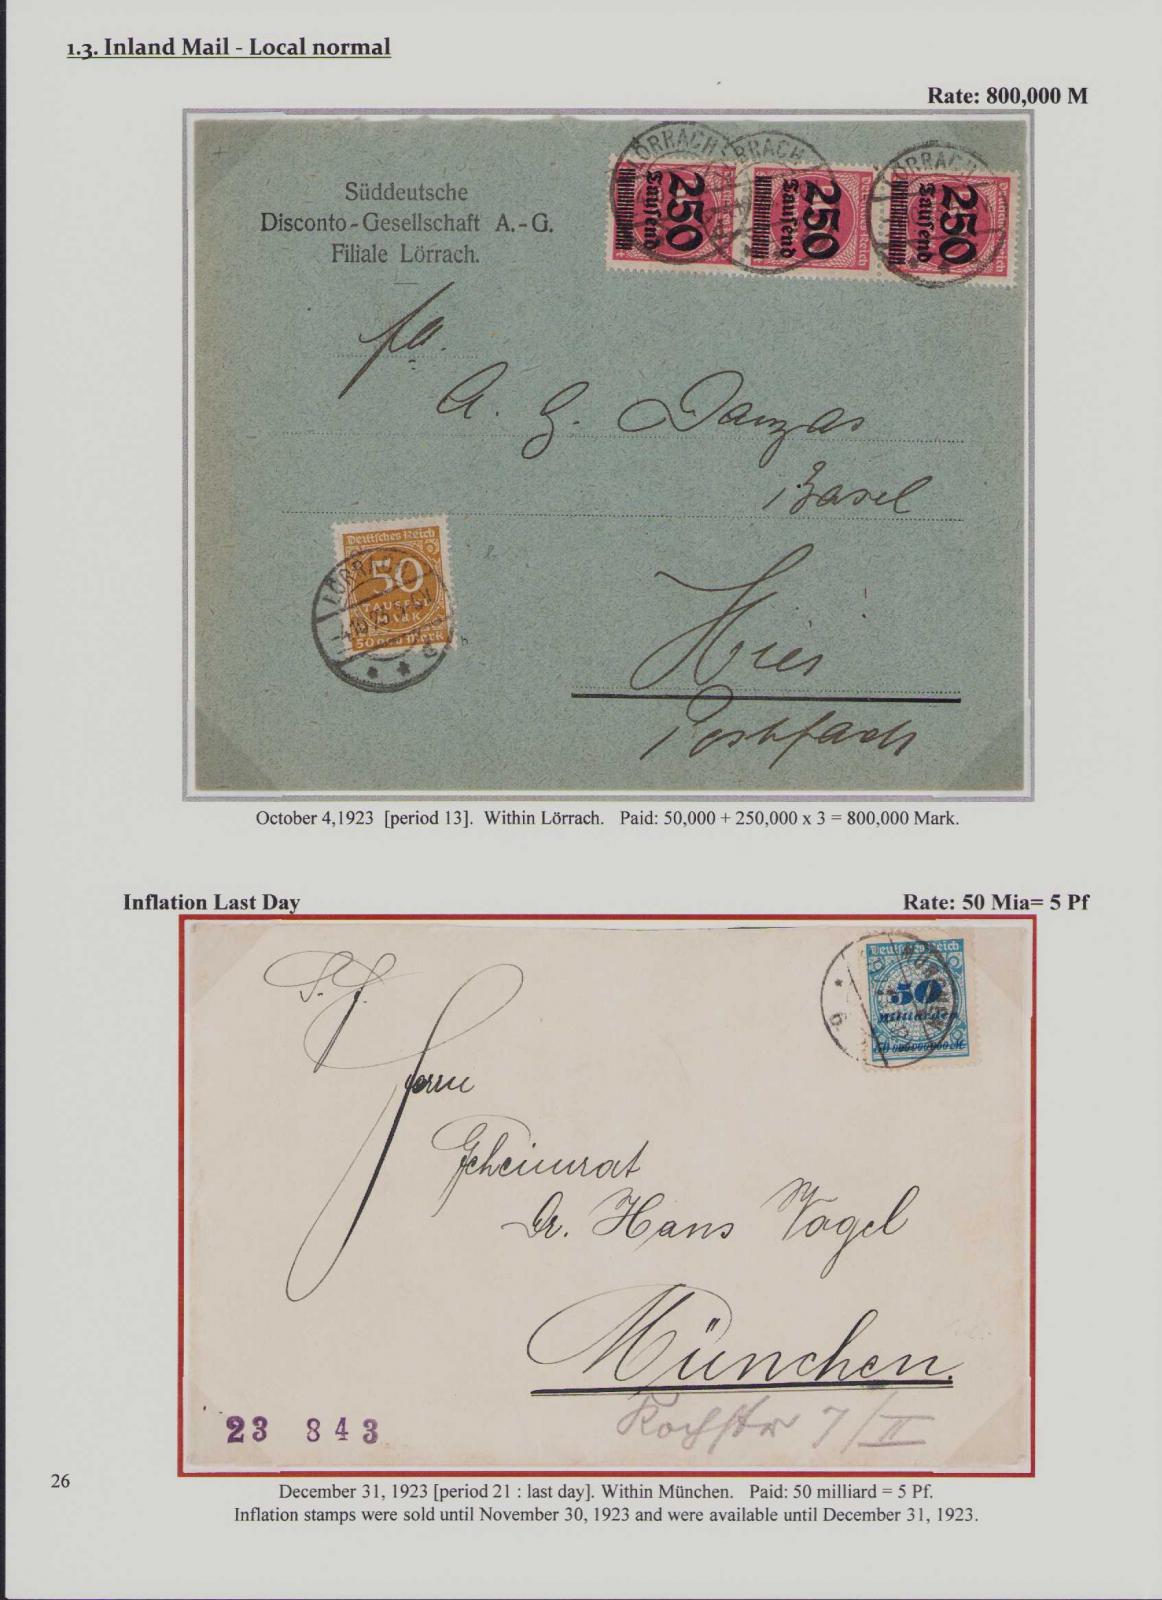 1.3. Inland Mail - Local normal
Rate: 800,000 M
Süddeutsche
Disconto-Gesellschaft A.-G.
Filiale Lörrach.
LÖRRACH
250 Tausend
250 Tausend
LÖRRACH
250 Tausend
Deutsches Reich
A. G. Danzas
Basel
Deutsches Reich
50
TAUSEND
MARK
50 000 Mark
LÖRRACH
Hier
Postfach
October 4,1923 [period 13]. Within Lörrach. Paid: 50,000 + 250,000 x 3 = 800,000 Mark.
Inflation Last Day
Rate: 50 Mia= 5 Pf
Deutsches Reich
50
Milliarden
MÜNCHEN
6
Herrn
Geheimrat
Dr. Hans Vogel
München.
Kochstr 7/II
23 843
26
December 31, 1923 [period 21 : last day]. Within München. Paid: 50 milliard = 5 Pf.
Inflation stamps were sold until November 30, 1923 and were available until December 31, 1923.